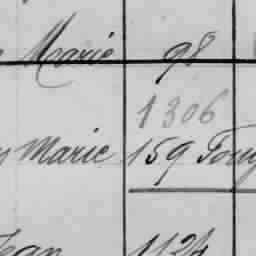 Marie 98
1306
Marie 159
Jean 1124